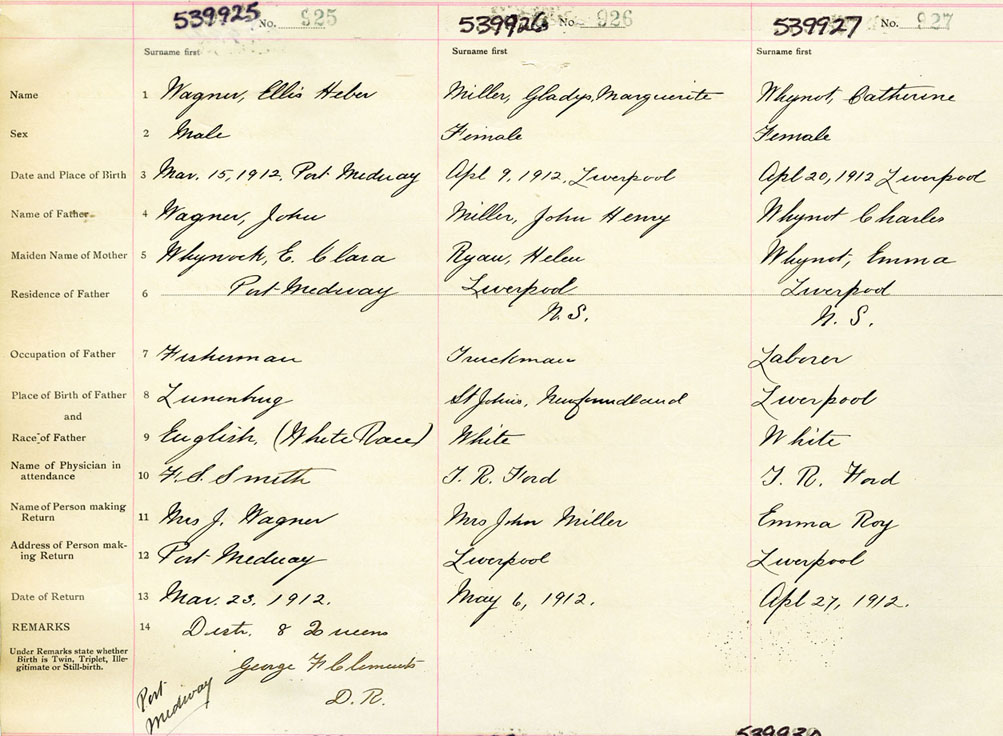 539925 No. 925 539926 No. 926 539927 No. 927
Surname first Surname first Surname first
Name 1 Wagner, Ellis Heber Miller, Gladys Marguerite Whynot, Catherine
Sex 2 Male Female Female
Date and Place of Birth 3 Mar. 15, 1912. Port Medway Apl 9, 1912. Liverpool Apl 20, 1912 Liverpool
Name of Father 4 Wagner, John Miller, John Henry Whynot Charles
Maiden Name of Mother 5 Whynock, E. Clara Ryan, Helen Whynot, Emma
Residence of Father 6 Port Medway Liverpool Liverpool
N.S. N.S.
Occupation of Father 7 Fisherman Truckman Laborer
Place of Birth of Father 8 Lunenburg St Johns, Newfoundland Liverpool
and
Race of Father 9 English. (White Race) White White
Name of Physician in
attendance 10 F.S. Smith T. R. Ford T. R. Ford
Name of Person making
Return 11 Mrs J. Wagner Mrs John Miller Emma Roy
Address of Person mak-
ing Return 12 Port Medway Liverpool Liverpool
Date of Return 13 Mar. 23. 1912. May 6, 1912. Apl 27, 1912.
REMARKS 14 Distr. 8 Queens
Under Remarks state whether
Birth is Twin, Triplet, Ille-
gitimate or Still-birth.
George F Clements
D.R.
Port
Medway